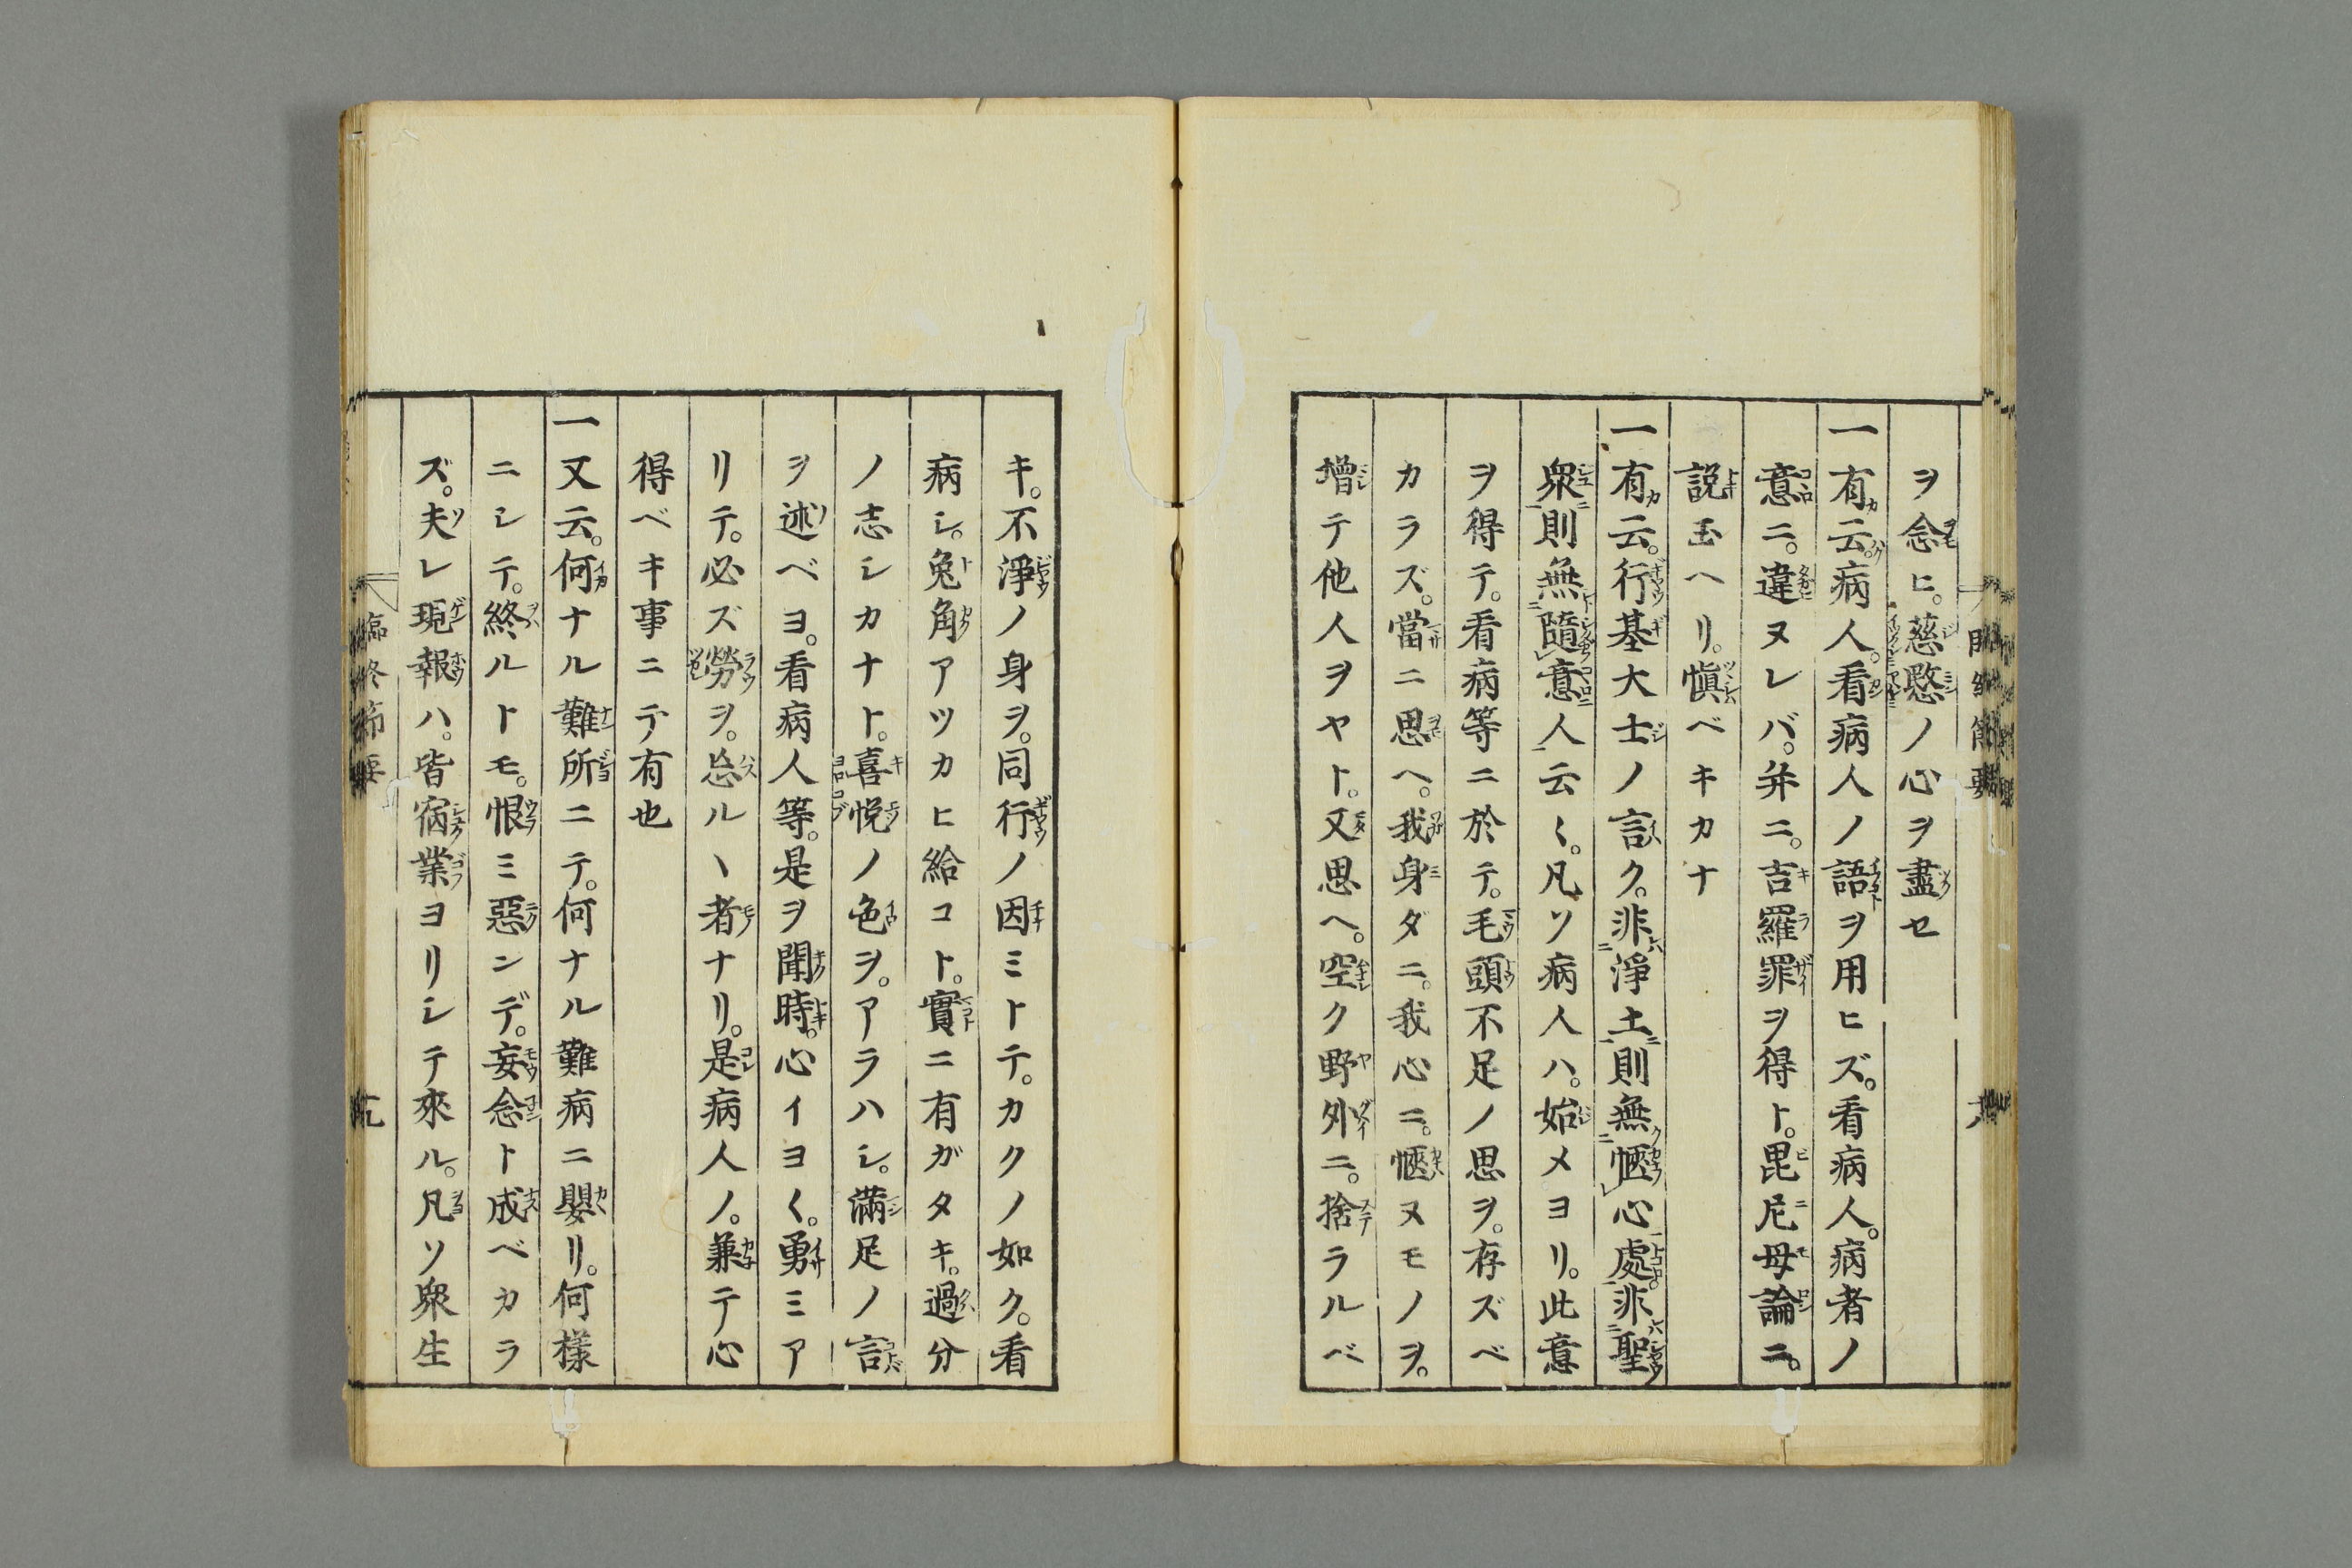 ヲ念ヒ。慈愍ノ心ヲ盡セ
一有云。病人。看病人ノ語ヲ用ヒズ。看病人。病者ノ
意ニ。違ヌレバ。并ニ。吉羅罪ヲ得ト。毘尼母論ニ。
説玉ヘリ。愼ベキカナ
一有云。行基大士ノ言ク。非淨土則無愜心處。非聖
衆則無隨意人云〻。凡ソ病人ハ。始メヨリ。此意
ヲ得テ。看病等ニ於テ。毛頭不足ノ思ヲ。存ズベ
カラズ。當ニ思ヘ。我身ダニ。我心ニ。愜ヌモノヲ。
増テ他人ヲヤト。又思ヘ。空ク野外ニ。捨ラルベ
キ。不淨ノ身ヲ。同行ノ因ミトテ。カクノ如ク。看
病シ。兔角アツカヒ給コト。實ニ有ガタキ。過分
ノ志シカナト。喜悅ノ色ヲ。アラハシ。滿足ノ言
ヲ述ベヨ。看病人等。是ヲ聞時。心イヨ〱。勇ミア
リテ。必ズ勞ヲ。忘ルヽ者ナリ。是病人ノ。兼テ心
得ベキ事ニテ有也
一又云。何ナル難所ニテ。何ナル難病ニ嬰リ。何樣
ニシテ。終ルトモ。恨ミ惡ンデ。妄念ト成ベカラ
ズ。夫レ現報ハ。皆宿業ヨリシテ來ル。凡ソ衆生
臨終節要